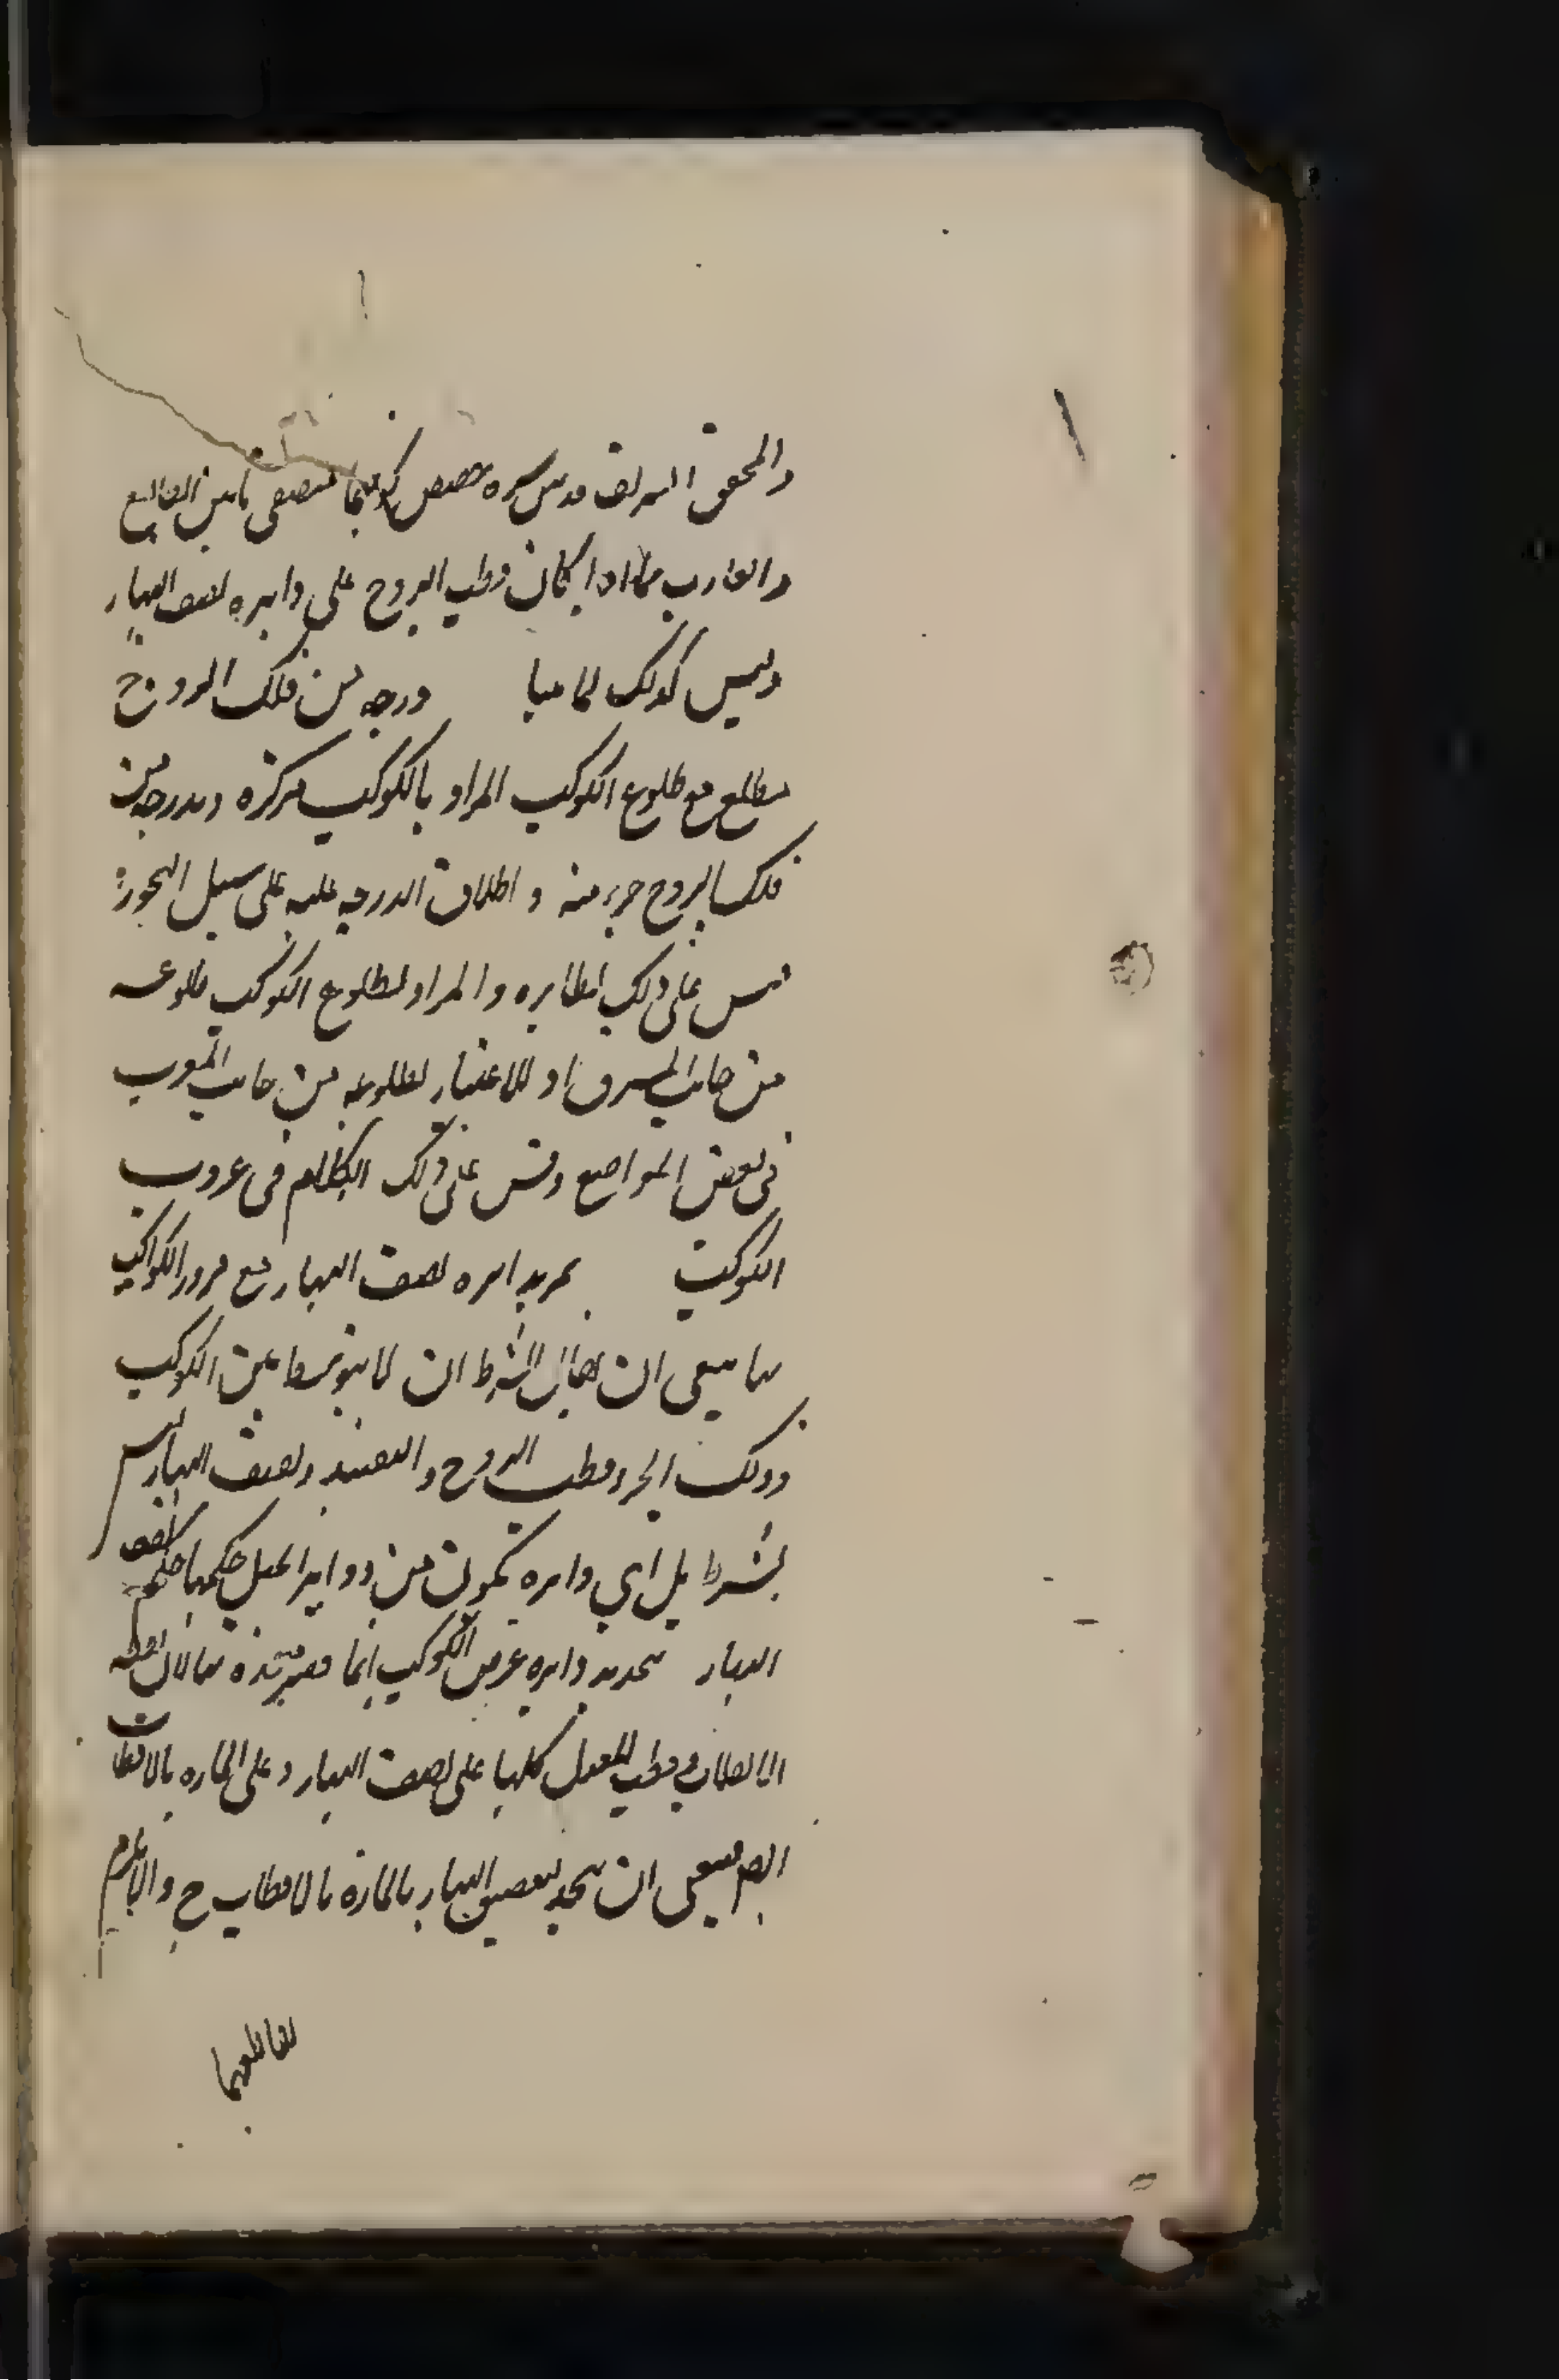 والمحقق الشريف قدس سره خصص كونهما منتصفى مابين الطالع
والغارب بما اذا كان قطب البروج على دايره نصف النهار
وليس كذلك لما مبا ودرجه من فلك البروج
تطلع مع طلوع الكوكب المراد بالكوكب مركزه وبدرجه من
فلك البروج جزء منه و اطلاق الدرجه عليه على سبيل التجوز
قس على ذلك نظايره والمراد بطلوع الكوكب طلوعه
من جانب المشرق اذ لا اعتبار لطلوعه من جانب المغرب
فى بعض المواضع وقس على ذلك الكلام فى غروب
الكوكب تمر بدايره نصف النهار مع مرور الكواكب
بها ينبغى ان يقال بشرط ان لا يتوسط بين الكوكب
وذلك الجزء قطب البروج والتقييد بنصف النهار ليس
بشرط بل اى دايره تكون من دواير الميل حكمها حكم نصف
النهار تتحد بدايره عرض الكوكب انما تصير متحدة بها لان نقطه
الانقلاب وقطب المعدل كلها على نصف النهار وعلى الماره بالاقطاب
الاربعه فينبغى ان تتحد نصف النهار بالمارة بالاقطاب ح والا يلزم
تقاطعهما